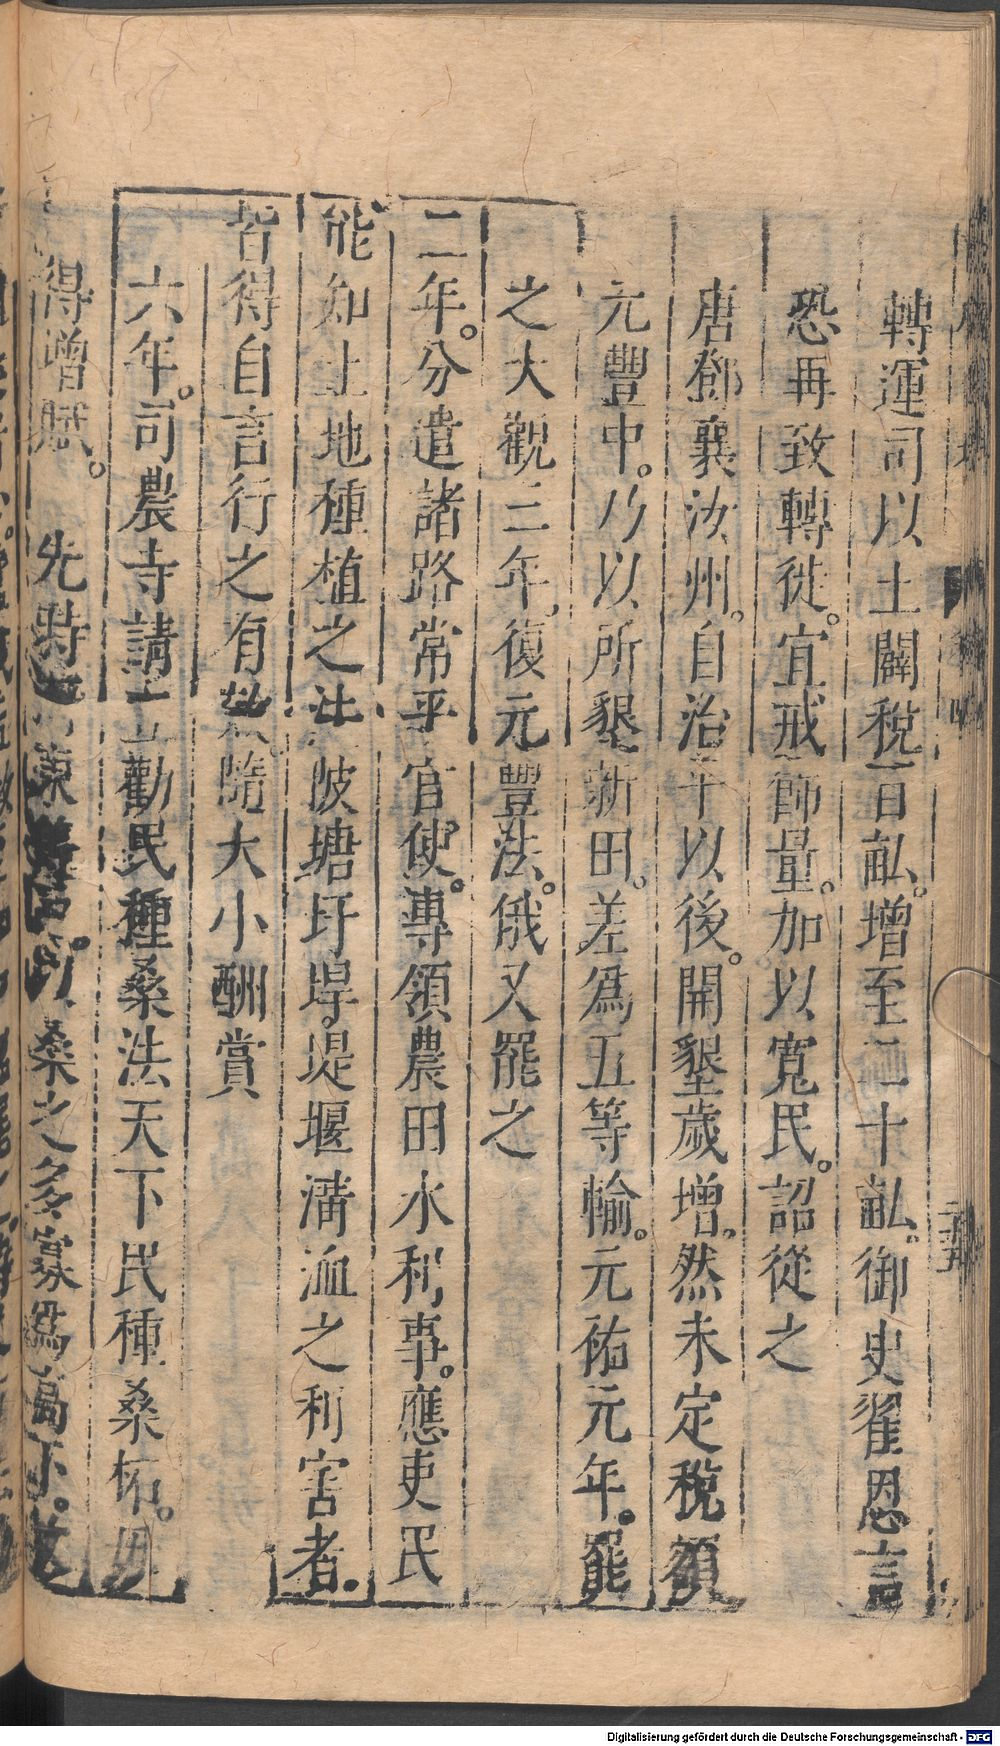 轉運司以土闢稅百畝。增至二十畝。御史翟恩言
恐再致轉徙。宜戒節量。加以寬民。詔從之
唐鄧襄汝州。自治平以後。開墾歲增。然未定稅額
元豐中。乃以所墾新田。差爲五等輸。元祐元年。罷
之大觀三年。復元豐法。俄又罷之
二年。分遣諸路常平官使。專領農田水利事。應吏民
能知土地種植之法陂塘圩垾。堤堰溝洫之利害者。
皆得自言行之有 隨大小酬賞
六年。司農寺請 勸民種桑法天下民種桑柘。毋
得增賦。 先時 桑之多寡爲高下。
Digitalisierung gefördert durch die Deutsche Forschungsgemeinschaft - DFG